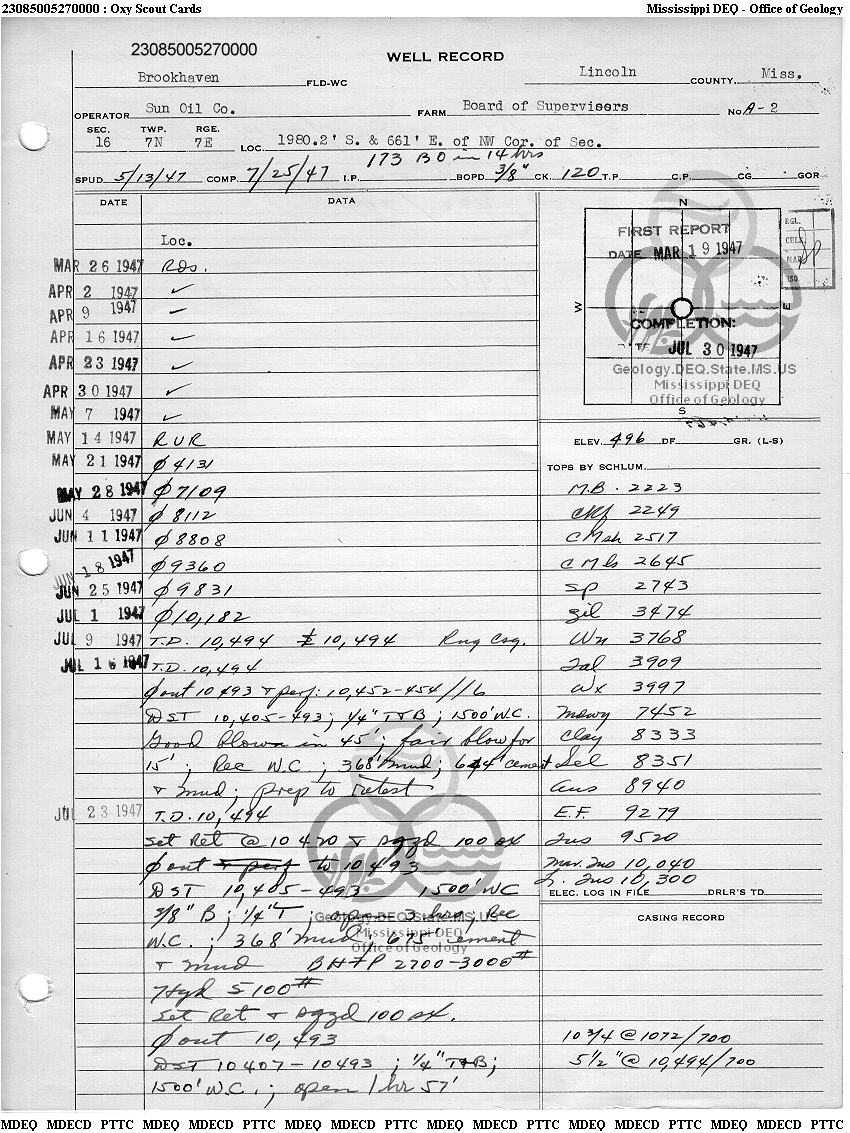 23085005270000 : Oxy Scout Cards
Mississippi DEQ - Office of Geology
23085005270000
WELL RECORD
Brookhaven FLD-WC Lincoln COUNTY, Miss.
OPERATOR Sun Oil Co. FARM Board of Supervisors No A-2
SEC. TWP. RGE.
16 7N 7E LOC. 1980.2' S. & 661' E. of NW Cor. of Sec.
173 BO in 14 hrs
SPUD 5/13/47 COMP. 7/25/47 I.P. BOPD 3/8" CK. 120 T.P. C.P. CG GOR
DATE DATA
Loc.
MAR 26 1947 RDs.
APR 2 1947 ✓
APR 9 1947 ✓
APR 16 1947 ✓
APR 23 1947 ✓
APR 30 1947 ✓
MAY 7 1947 ✓
MAY 14 1947 RUR
MAY 21 1947 Ø 4131
MAY 28 1947 Ø 7109
JUN 4 1947 Ø 8112
JUN 11 1947 Ø 8808
JUN 18 1947 Ø 9360
JUN 25 1947 Ø 9831
JUL 1 1947 Ø 10,182
JUL 9 1947 T.D. 10,494 10,494 Rng Csg.
JUL 16 1947 T.D. 10,494
Ø out 10493 + perf: 10,452-454//6
DST 10,405-493; 1/4" T&B; 1500' W.C.
Good blow in 45'; fair blow for
15'; Rec W.C.; 368' mud; 644' cement
+ mud; prep to retest
JUL 23 1947 T.D. 10,494
Set Ret @ 10420 + sqzd 100 sx
Ø out + perf to 10493
DST 10,405-493 1500' WC
5/8" B; 1/4" T; open 3 hrs, Rec
W.C.; 368' mud; 675' cement
+ mud BHFP 2700-3000#
Hyd 5100#
Set Ret + sqzd 100 sx.
Ø out 10,493
DST 10407-10493; 1/4" T&B;
1500' W.C.; open 1 hr 57'
N
W
E
S
FIRST REPORT
DATE MAR 19 1947
COMPLETION:
DATE JUL 30 1947
RGL.
CHLK
MAP
ISO.
Geology.DEQ.State.MS.US
Mississippi DEQ
Office of Geology
ELEV. 496 DF GR. (L-S)
TOPS BY SCHLUM.
M.B. 2223
Ckf 2249
CMsh 2517
CMls 2645
Sp 2743
Zil 3474
Wn 3768
Tal 3909
Wx 3997
Mdwy 7452
Clay 8333
Sel 8351
Aus 8940
E.F. 9279
Tus 9520
Mar. Tus 10,040
L. Tus 10,300
ELEC. LOG IN FILE DRLR'S TD
CASING RECORD
10 3/4 @ 1072/700
5 1/2" @ 10,494/700
Geology.DEQ.State.MS.US
Mississippi DEQ
Office of Geology
MDEQ MDECD PTTC MDEQ MDECD PTTC MDEQ MDECD PTTC MDEQ MDECD PTTC MDEQ MDECD PTTC MDEQ MDECD PTTC